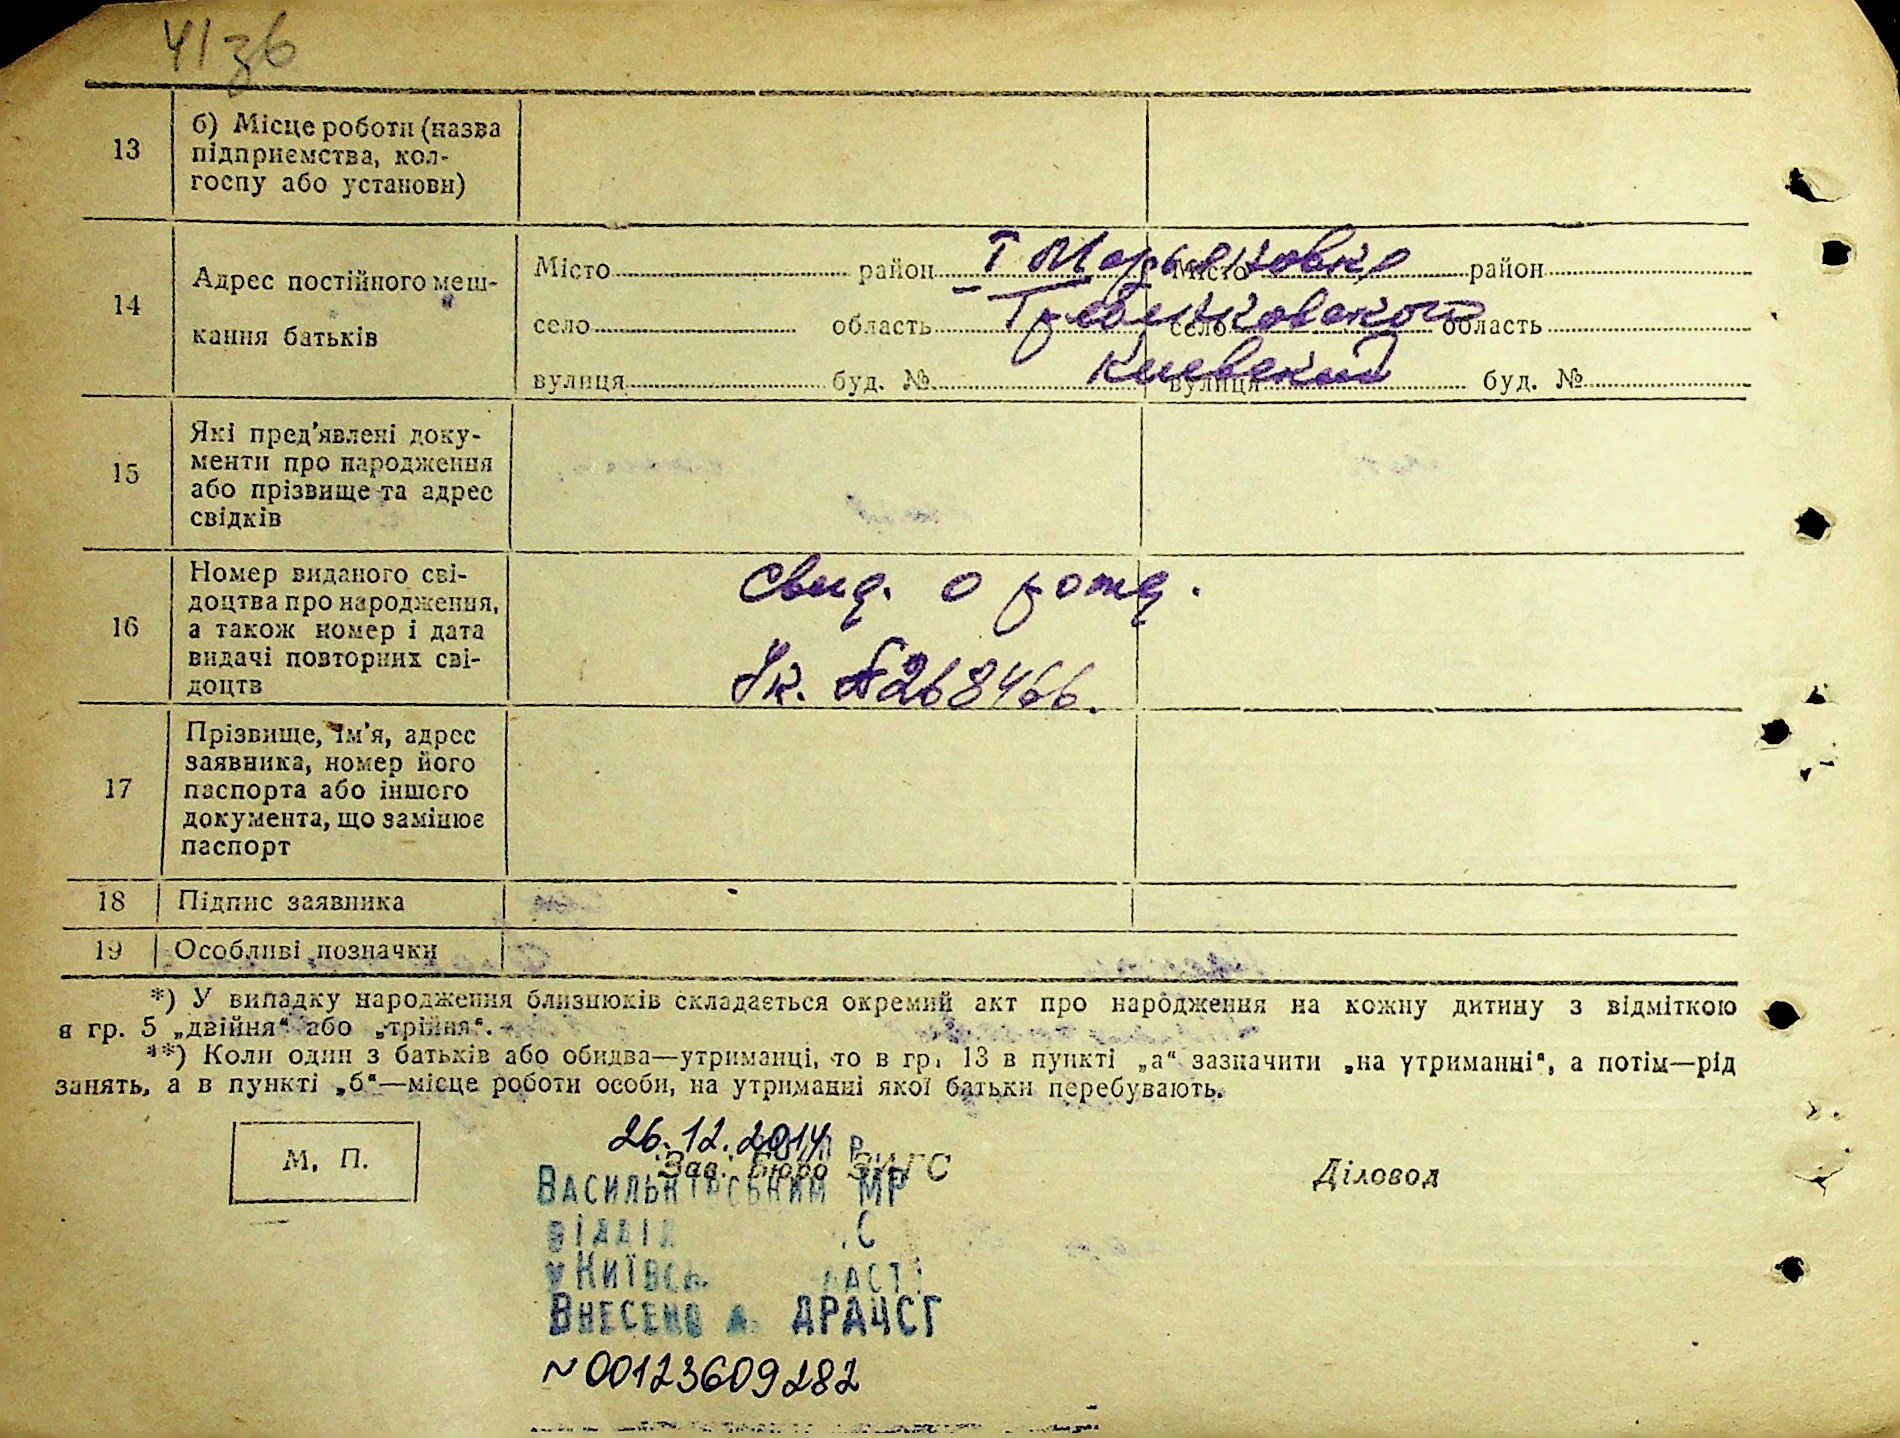 41зв
13
б) Місце роботи (назва
підприємства, кол-
госпу або установи)
14
Адрес постійного меш-
кання батьків
Місто район І Марьяновка Місто район
село область Гребенковского село область
вулиця буд. № Киевской вулиця буд. №
15
Які пред'явлені доку-
менти про народження
або прізвище та адрес
свідків
16
Номер виданого сві-
доцтва про народження,
а також номер і дата
видачі повторних сві-
доцтв
Свид. о рожд.
Ук. № 268466.
17
Прізвище, ім'я, адрес
заявника, номер його
паспорта або іншого
документа, що замінює
паспорт
18 Підпис заявника
19 Особливі позначки
*) У випадку народження близнюків складається окремий акт про народження на кожну дитину з відміткою
в гр. 5 „двійня“ або „трійня“.
**) Коли один з батьків або обидва—утриманці, то в гр. 13 в пункті „а“ зазначити „на утриманні“, а потім—рід
занять, а в пункті „б“—місце роботи особи, на утриманні якої батьки перебувають.
М. П.
26.12.2014 р
Зав. Бюро ЗАГС
Діловод
Васильківський МР
відділ С
у Київс ласті
Внесено д ДРАЦСГ
N00123609282